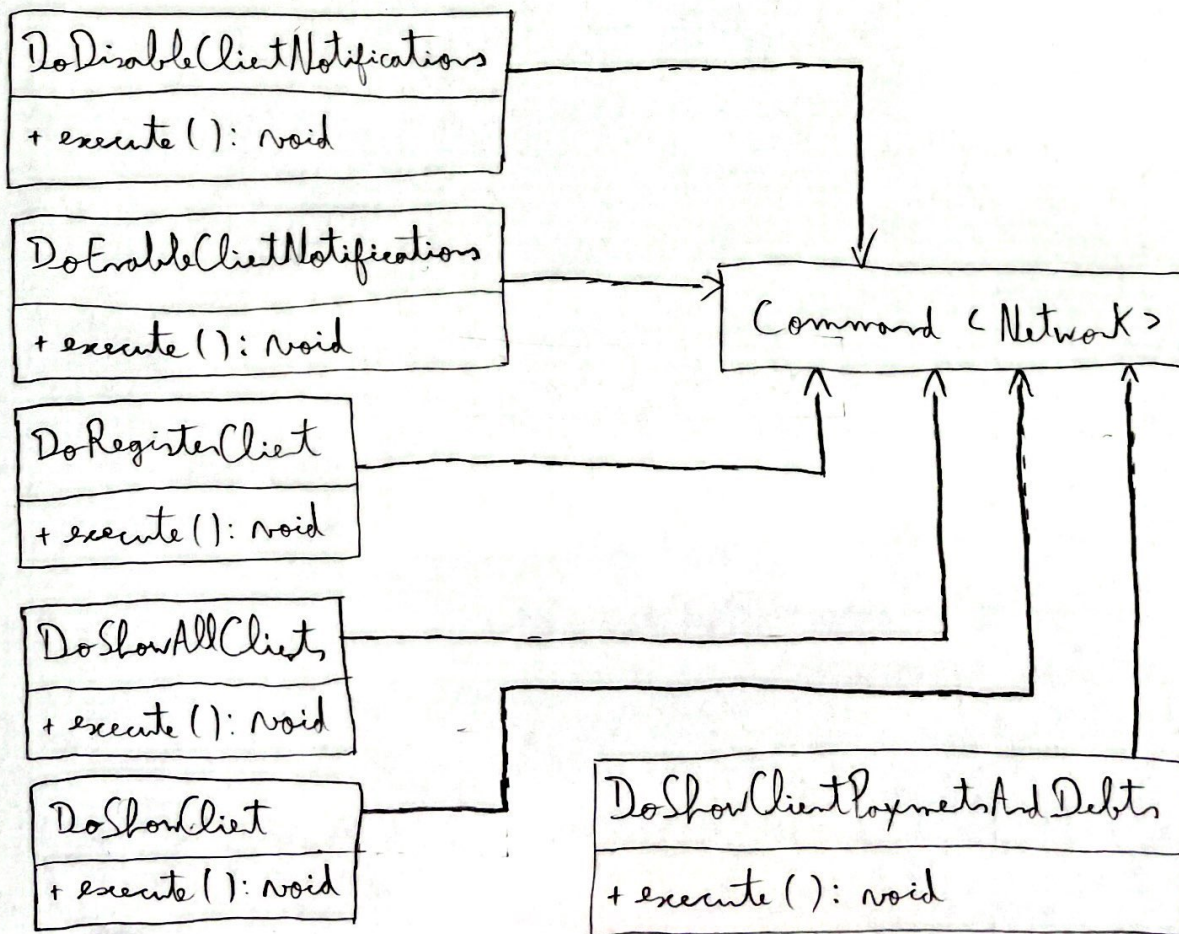 DoDisableClientNotifications
+ execute(): void
DoEnableClientNotifications
+ execute(): void
Command <Network>
DoRegisterClient
+ execute(): void
DoShowAllClients
+ execute(): void
DoShowClient
+ execute(): void
DoShowClientPaymetsAndDebts
+ execute(): void